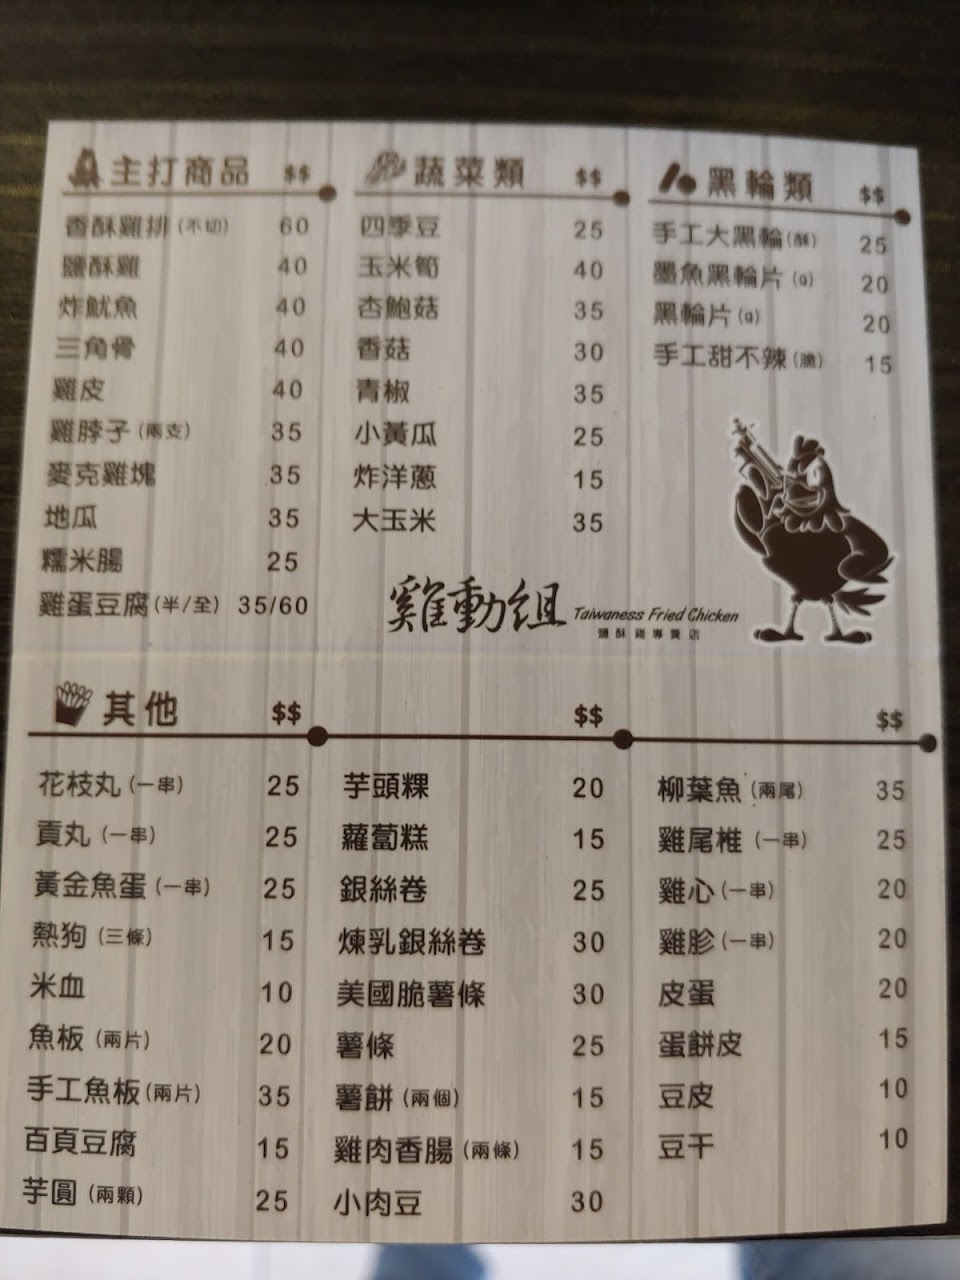 主打商品 $$
香酥雞排(不切) 60
鹽酥雞 40
炸魷魚 40
三角骨 40
雞皮 40
雞脖子(兩支) 35
麥克雞塊 35
地瓜 35
糯米腸 25
雞蛋豆腐(半/全) 35/60
蔬菜類 $$
四季豆 25
玉米筍 40
杏鮑菇 35
香菇 30
青椒 35
小黃瓜 25
炸洋蔥 15
大玉米 35
黑輪類 $$
手工大黑輪(酥) 25
墨魚黑輪片(Q) 20
黑輪片(Q) 20
手工甜不辣(脆) 15
雞動組 Taiwaness Fried Chicken
鹽酥雞專賣店
其他 $$
花枝丸(一串) 25
貢丸(一串) 25
黃金魚蛋(一串) 25
熱狗(三條) 15
米血 10
魚板(兩片) 20
手工魚板(兩片) 35
百頁豆腐 15
芋圓(兩顆) 25
$$
芋頭粿 20
蘿蔔糕 15
銀絲卷 25
煉乳銀絲卷 30
美國脆薯條 30
薯條 25
薯餅(兩個) 15
雞肉香腸(兩條) 15
小肉豆 30
$$
柳葉魚(兩尾) 35
雞尾椎(一串) 25
雞心(一串) 20
雞胗(一串) 20
皮蛋 20
蛋餅皮 15
豆皮 10
豆干 10